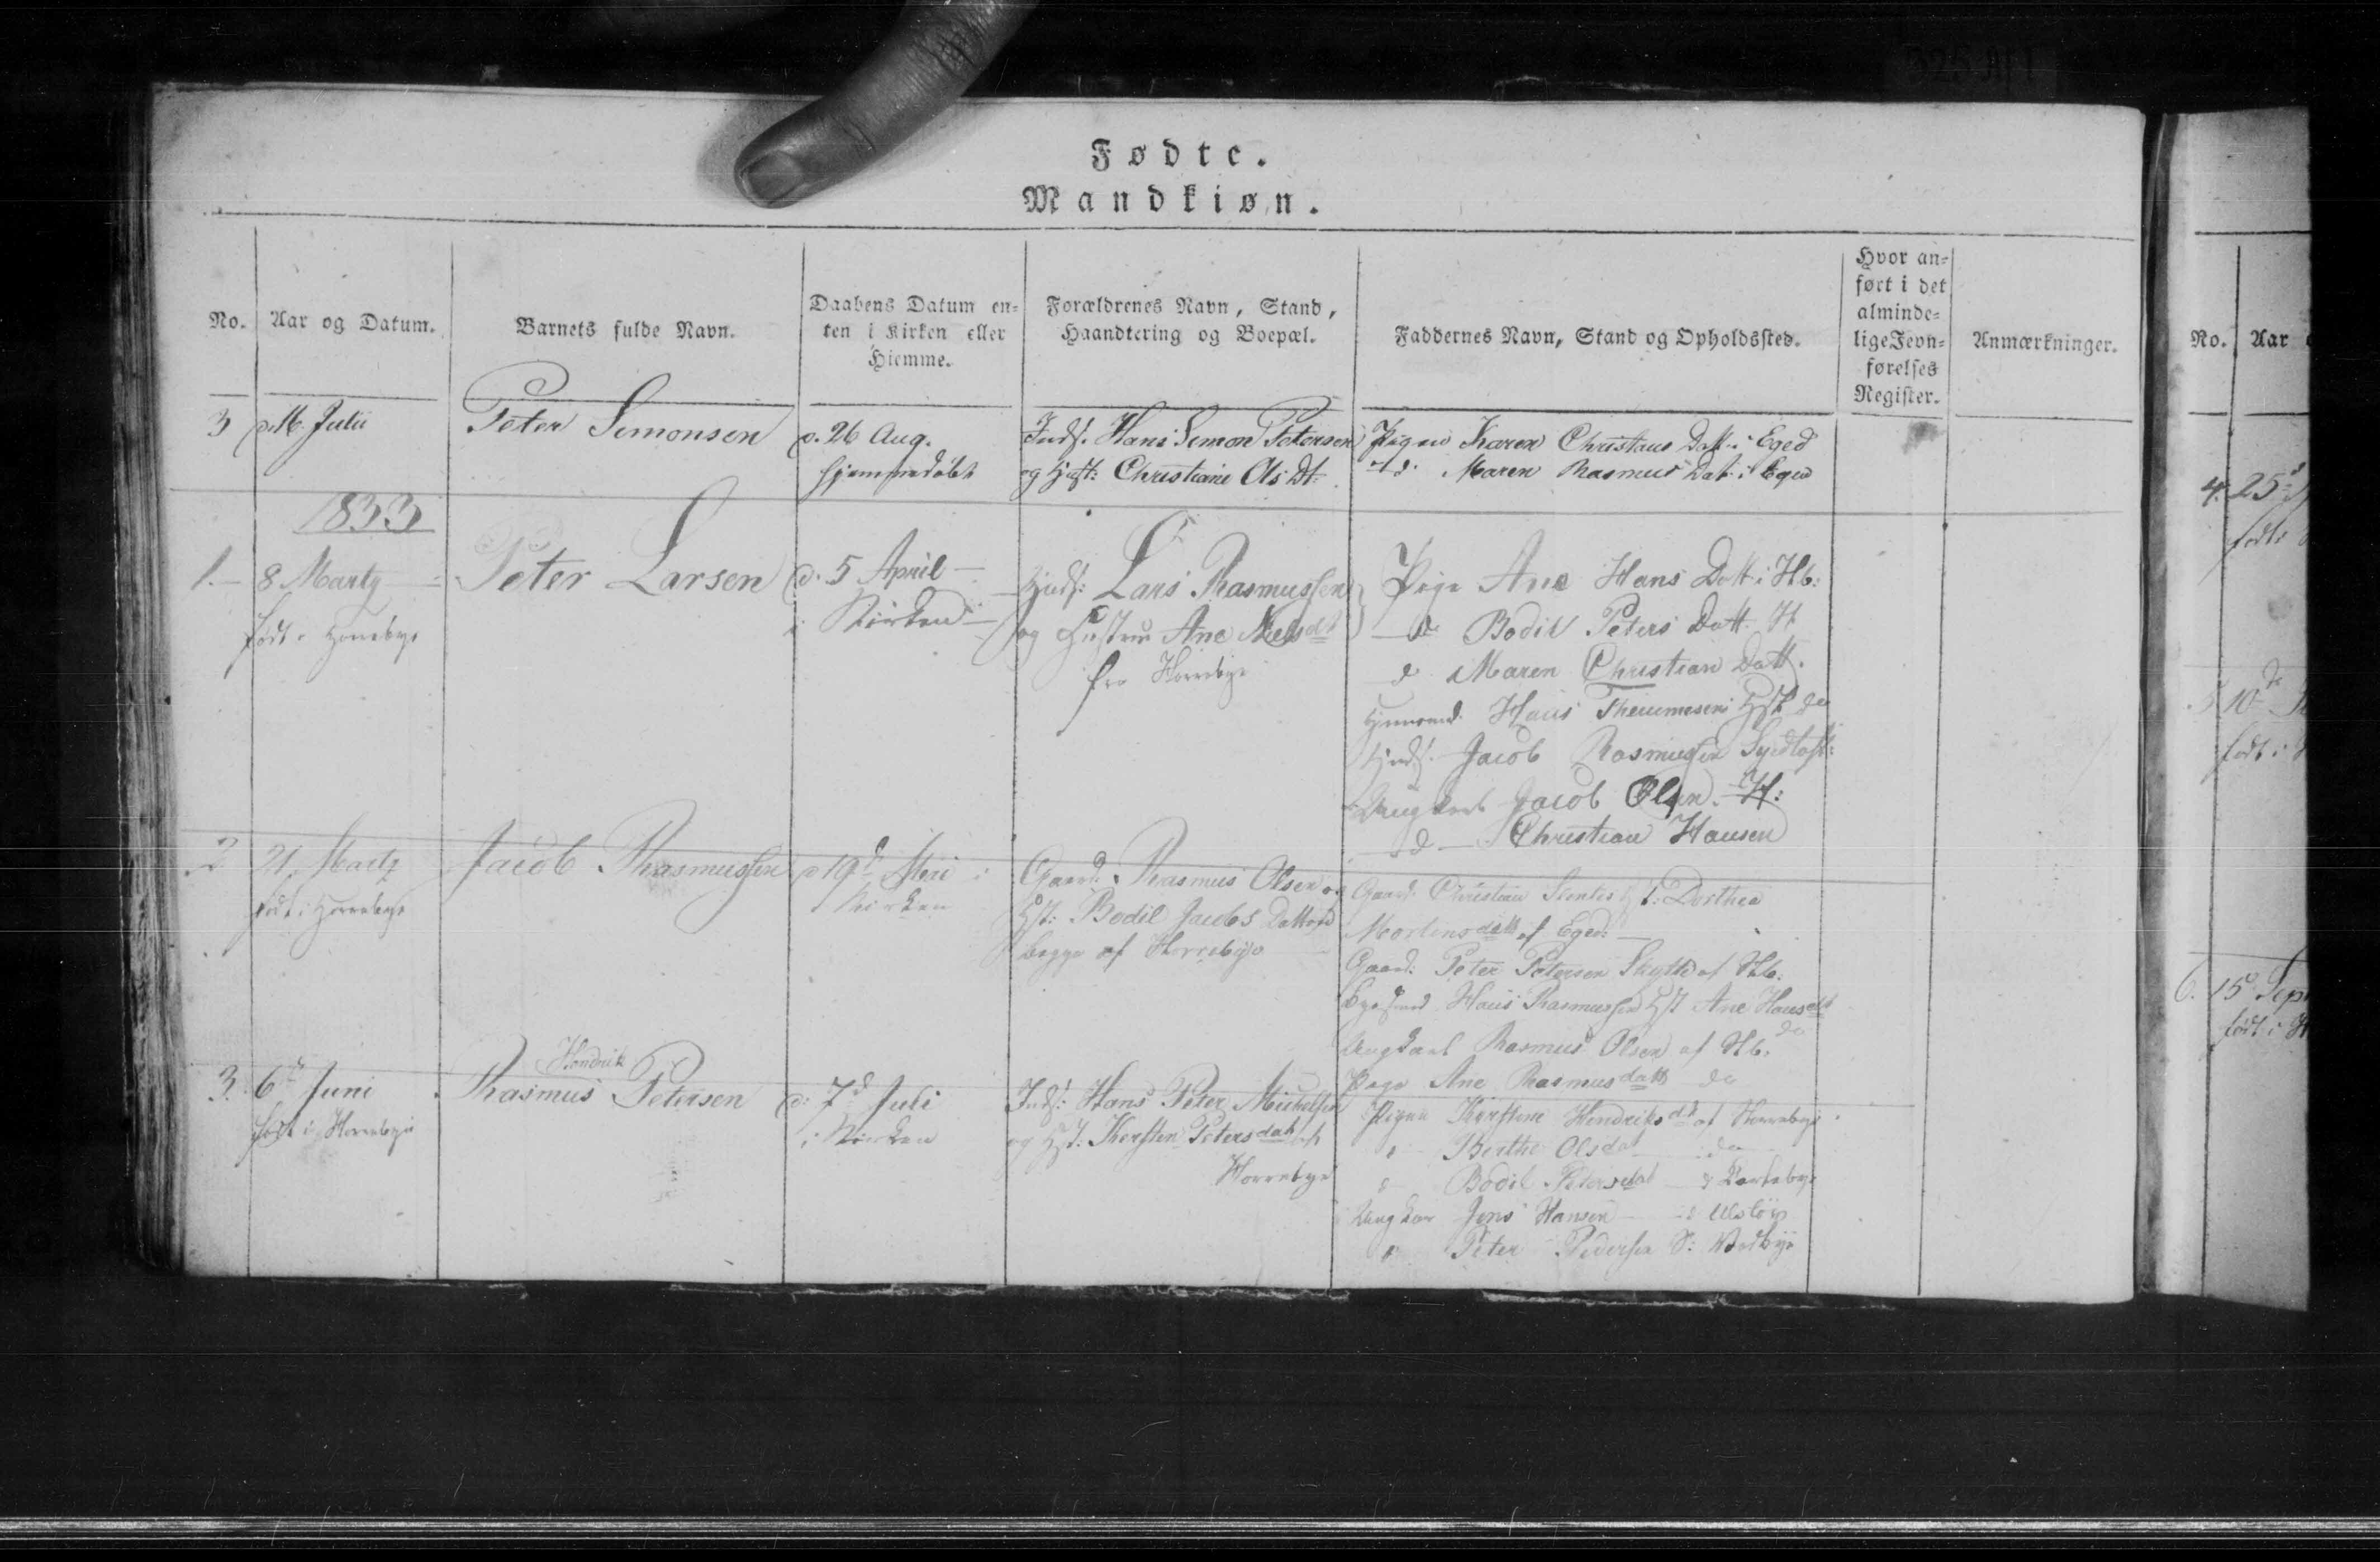 Fødte.
Mandkiøn.
No.
Aar og Datum.
Barnets fulde Navn.
Daabens Datum en-
ten i Kirken eller
Hiemme.
Forældrenes Navn, Stand,
Haandtering og Boepæl.
Faddernes Navn, Stand og Opholdssted.
Hvor an-
ført i det
alminde-
lige Jevn-
førelses
Register.
Anmærkninger.
3
d. 16 Julii
Peter Simonsen
d. 26 Aug.
hjemmedøbt
Inds. Hans Simon Petersen
og Hust: Christiane Ols Dt:
Pigen Karen Christans Datt. i Eged
d. Maren Rasmus Dat. i Eged
1833
1.
8 Marty
født i Horrebye
Peter Larsen
d. 5 April
i Kirken
Huds: Lars Rasmussen
og Hustrue Ane Nielsdt
fra Horrebye
Pige Ane Hans Datt i Hb:
do Bodil Peters Datt H
d Maren Christian Datt.
Hans Hst do
Huds. Jacob Rasmussen
Ungkarl Jacob Olsen. H:
d Christian Hansen
2
21 Martz
født i Horrebye
Jacob Rasmussen
d 19d Mai i
Kirken
Gaard. Rasmus Olsen og
Hst: Bodil Jacobs Datter
begge af Horrebye
Gaard. Christian Hst: Dorthea
Mortensdatt af Eged:
Gaard: Peter Petersen Skytte af Hb.
Hans Rasmussen Hst Ane Hansdt
do
Ungkarl Rasmus Olsen af Hb.
Pige Ane Rasmusdatt do
3.
6d Juni
født i Horrebye
Hendrik
Rasmus Petersen
d: 7d Juli
i Kirken
Inds: Hans Peter Michelsen
og Hst. Kersten Petersdatt af
Horrebye
Pigen Kirstene Hendriksdt af Horrebye
Berthe Olsdat do
d Bodil Petersdat
Ungkar Jens Hansen
Peter Pedersen
No.
Aar
4.
25d
født
5
10de
født i
6.
15d Sept
født i H